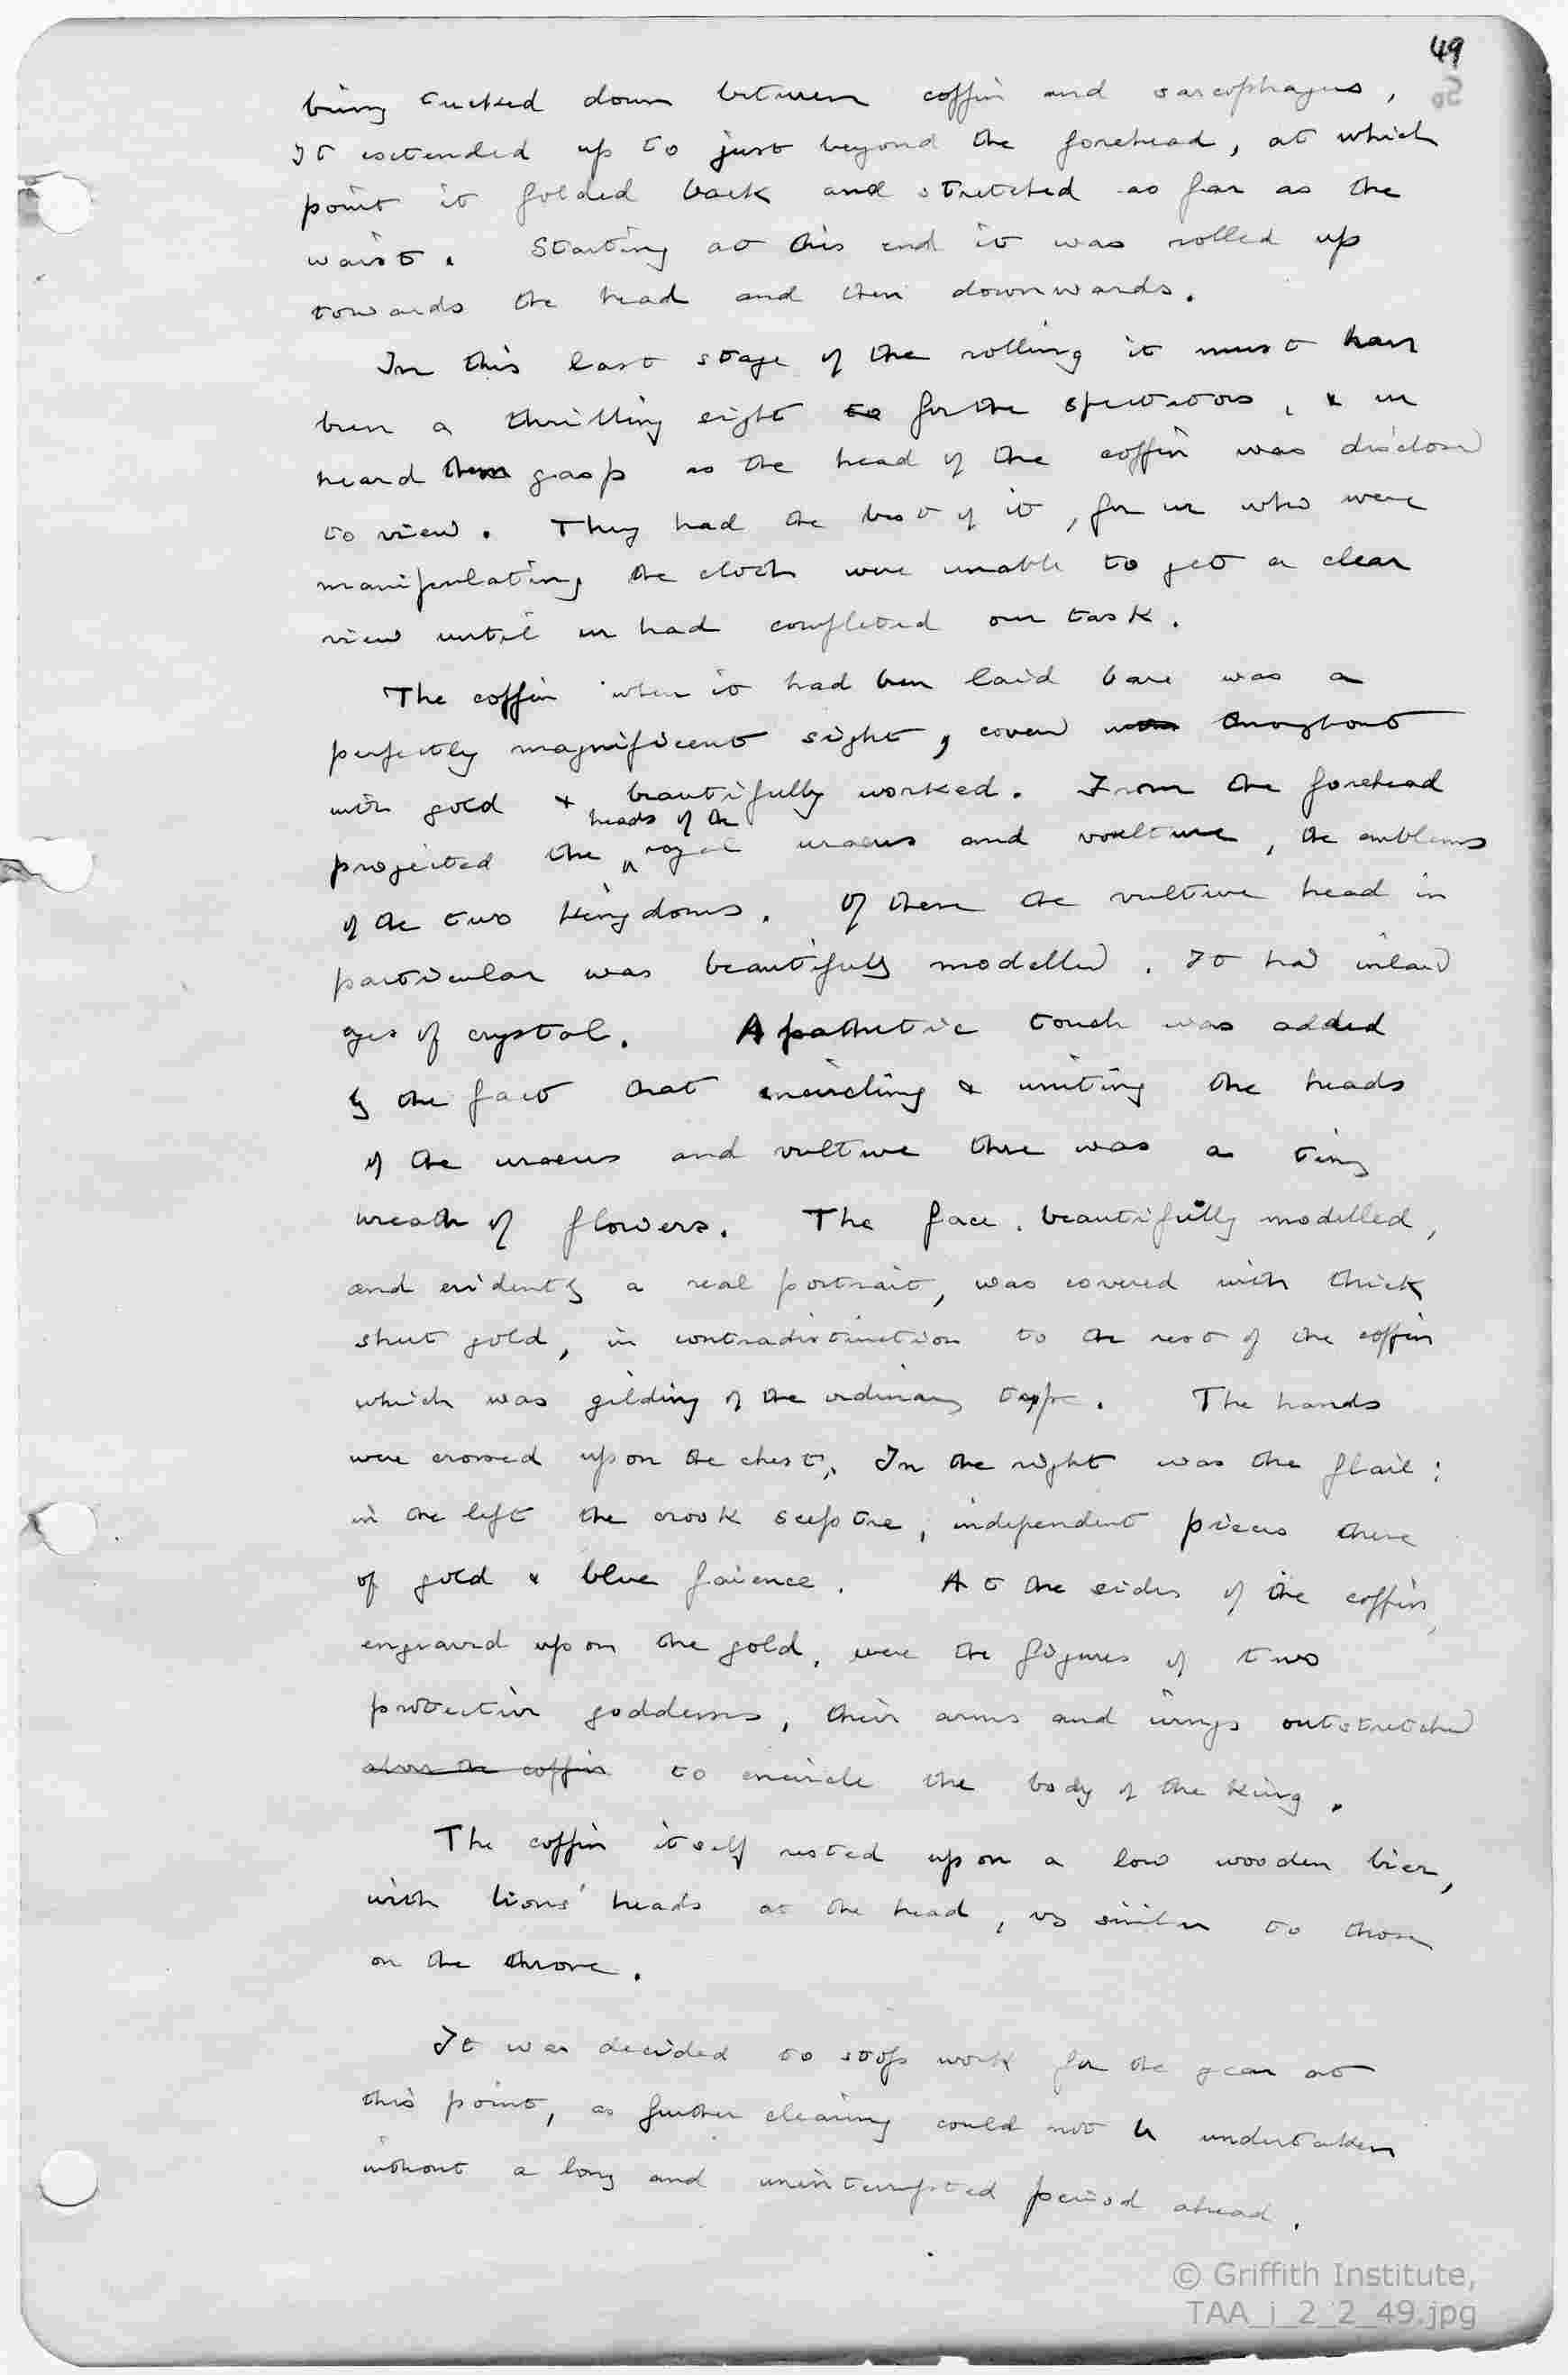 49
50
being tucked down between coffin and sarcophagus,
It extended up to just beyond the forehead, at which
point it folded back and stretched as far as the
waist. Starting at this end it was rolled up
towards the head and then downwards.
In this last stage of the rolling it must have
been a thrilling sight to for the spectators, & we
heard them gasp as the head of the coffin was disclosed
to view. They had the best of it, for we who were
manipulating the cloth were unable to get a clear
view until we had completed our task.
The coffin when it had been laid bare was a
perfectly magnificent sight, covered with throughout
with gold & beautifully worked. From the forehead
heads of the
projected the royal uraeus and voulture, the emblems
of the two kingdoms. Of these the vulture head in
particular was beautifully modelled. It had inlaid
eyes of crystal. A pathetic touch was added
by the fact that encircling & uniting the heads
of the uraeus and vulture there was a tiny
wreath of flowers. The face, beautifully modelled,
and evidently a real portrait, was covered with thick
sheet gold, in contradistinction to the rest of the coffin
which was gilding of the ordinary type. The hands
were crossed upon the chest. In the right was the flail:
in the left the crook sceptre, independent pieces these
of gold & blue faience. At the sides of the coffin,
engraved upon the gold, were the figures of two
protective goddesses, their arms and wings outstretched
above the coffin to encircle the body of the King.
The coffin itself rested upon a low wooden bier,
with lions' heads at the head, vy similar to those
on the throne.
It was decided to stop work for the year at
this point, as further clearing could not be undertaken
without a long and uninterrupted period ahead.
© Griffith Institute,
TAA_i_2_2_49.jpg